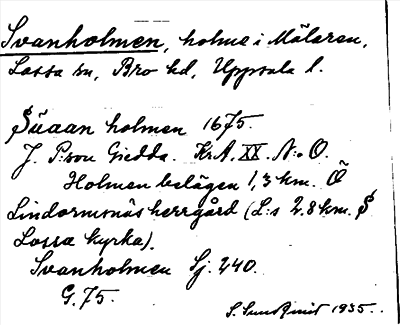 Svanholmen, holme i Mälaren,
Lossa sn, Bro hd, Uppsala l.
Suaan holmen 1675.
J. P:son Gedda. KrA. XX. N:o O.
Holmen belägen 1,3 km. Ö
Lindormsnäs herrgård (L:s 2.8 km. S
Lossa kyrka).
Svanholmen Sj. 240.
G. 75.
S. Sundqvist 1935.